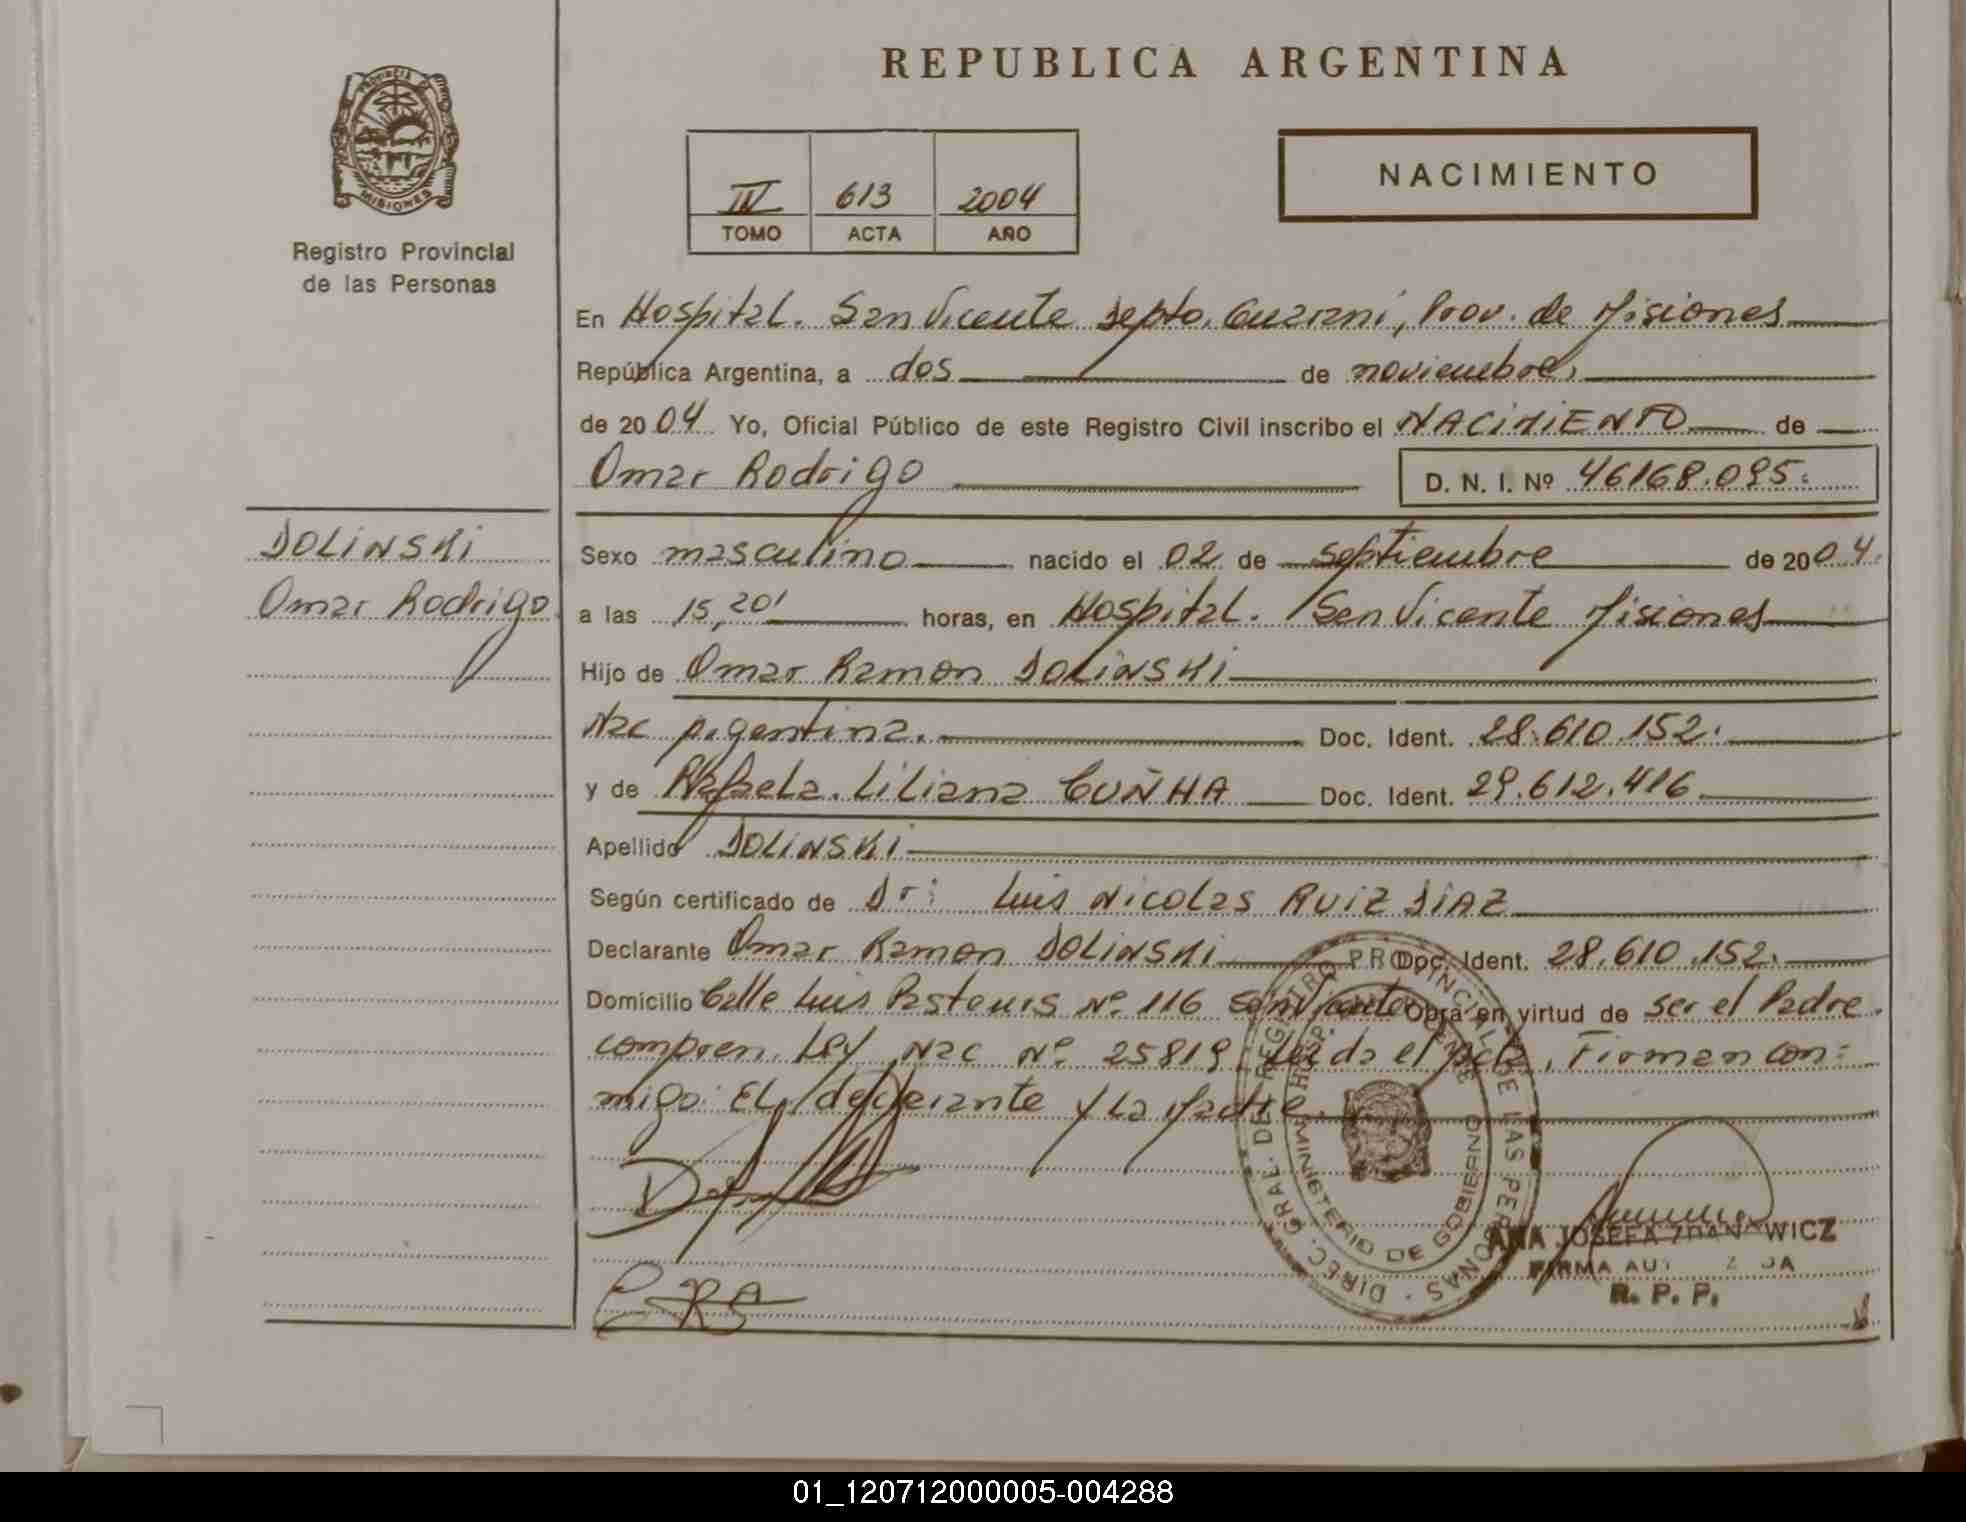 REPUBLICA ARGENTINA
PROVINCIA DE
MISIONES
Registro Provincial
de las Personas
IV 613 2004
TOMO ACTA AÑO
NACIMIENTO
En Hospital. San Vicente Depto. Guarani, Prov. de Misiones
República Argentina, a dos de noviembre,
de 2004 Yo, Oficial Público de este Registro Civil inscribo el NACIMIENTO de
Omar Rodrigo D. N. I. Nº 46168.095.
DOLINSKI
Omar Rodrigo
Sexo masculino nacido el 02 de septiembre de 2004.
a las 15,20' horas, en Hospital. San Vicente Misiones
Hijo de Omar Ramon DOLINSKI
Nac Argentina. Doc. Ident. 28.610.152.
y de Rafaela. Liliana CUÑHA Doc. Ident. 29.612.416
Apellido DOLINSKI
Según certificado de Dr: Luis Nicolas RUIZ DIAZ
Declarante Omar Ramon DOLINSKI Doc. Ident. 28.610.152.
Domicilio Calle Luis Pasteur Nº 116 San Vicente Obra en virtud de ser el Padre.
compren. Ley Nac Nº 25819 Leida el Acta, Firman con-
migo: EL declarante y La Madre.
DIREC. GRAL. DE REGISTRO PROVINCIAL DE LAS PERSONAS
MINISTERIO DE GOBIERNO
HOSP.
ANA JOSEFA
FIRMA
R. P. P.
01_120712000005-004288